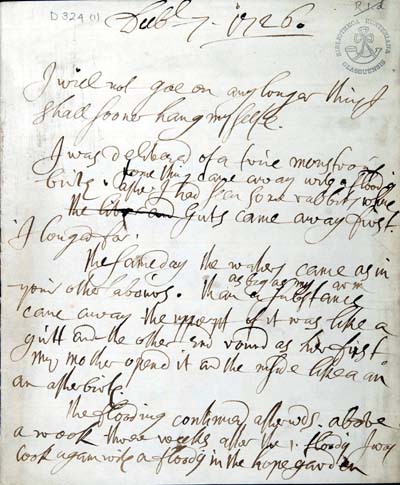 D 324 (1)
R.1.d.
BIBLIOTHECA HUNTERIANA GLASGUENSIS
Decbr 7. 1726.
I will not goe on any longer thus I
shall sooner hang my selfe.
I was delivered of a true monstros
birth. some thing came away with a floodig
after I had seen some rabbits
the liver and Guts came away first.
I longed for.
the same day the waters came as in
your other labours. than a substance
as big as my arm
came away the of it was like a
gutt and the other end round as her first
my mother opend it and the inside like a in
an afterbirth.
the flooding continued afterwds. above
a week three weeks after the 1. floody I was
took again with a floody in the hope garden